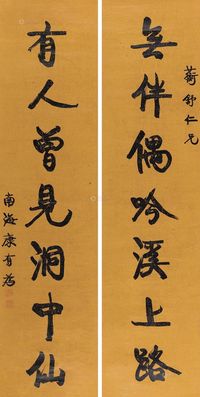 蘅舒仁兄
無伴偶吟溪上路
有人曾見洞中仙
南海康有為